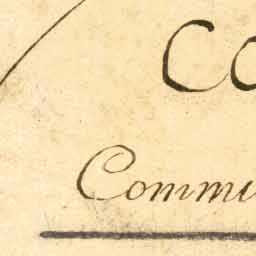 Co
Commu